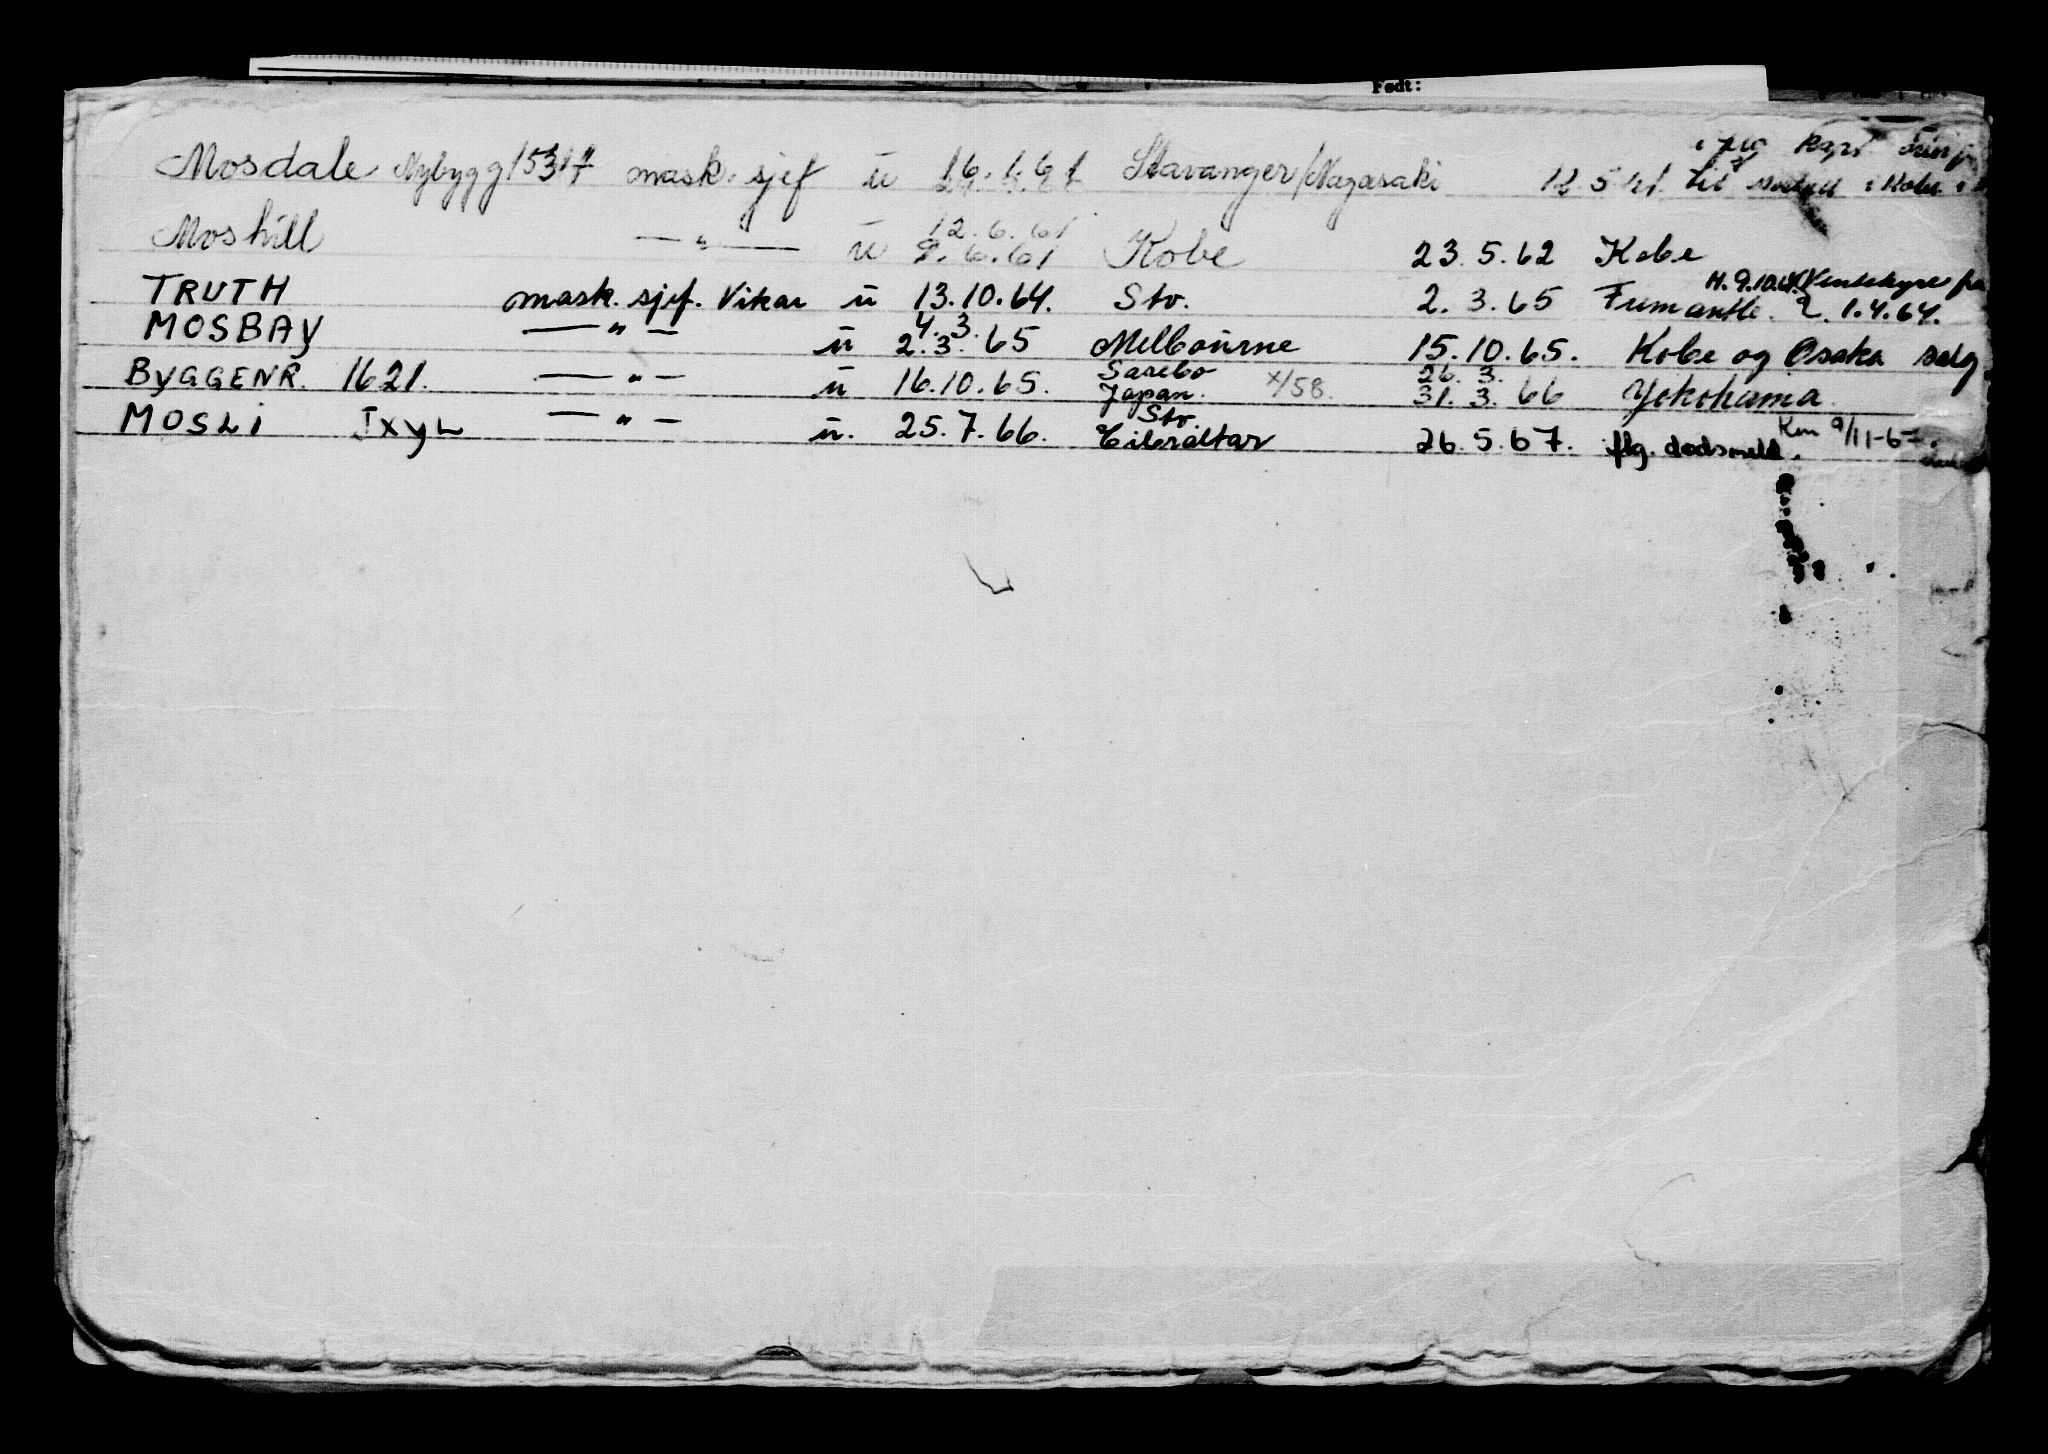 Født:
Mosdale Nybygg 15317 mask. sjef u 16.1.61 Stavanger/Nagasaki 12.5.61 til i Kobe
12.6.61
Moshill — " — u 9.6.61 Kobe 23.5.62 Kobe
H. 9.10.64
TRUTH mask. sjef. Vikar u 13.10.64. Stv. 2.3.65 1.4.64.
4.3.
MOSBAY — " — u 2.3.65 Melbourne 15.10.65. Kobe og Osaka salg
Sasebo 26.3.
BYGGENR. 1621. — " — u 16.10.65. Japan. x/58. 31.3.66 Yokohama
Stv. 9/11-67.
MOSLI — " — u. 25.7.66. Gibraltar 26.5.67. flg. dødsmeld.